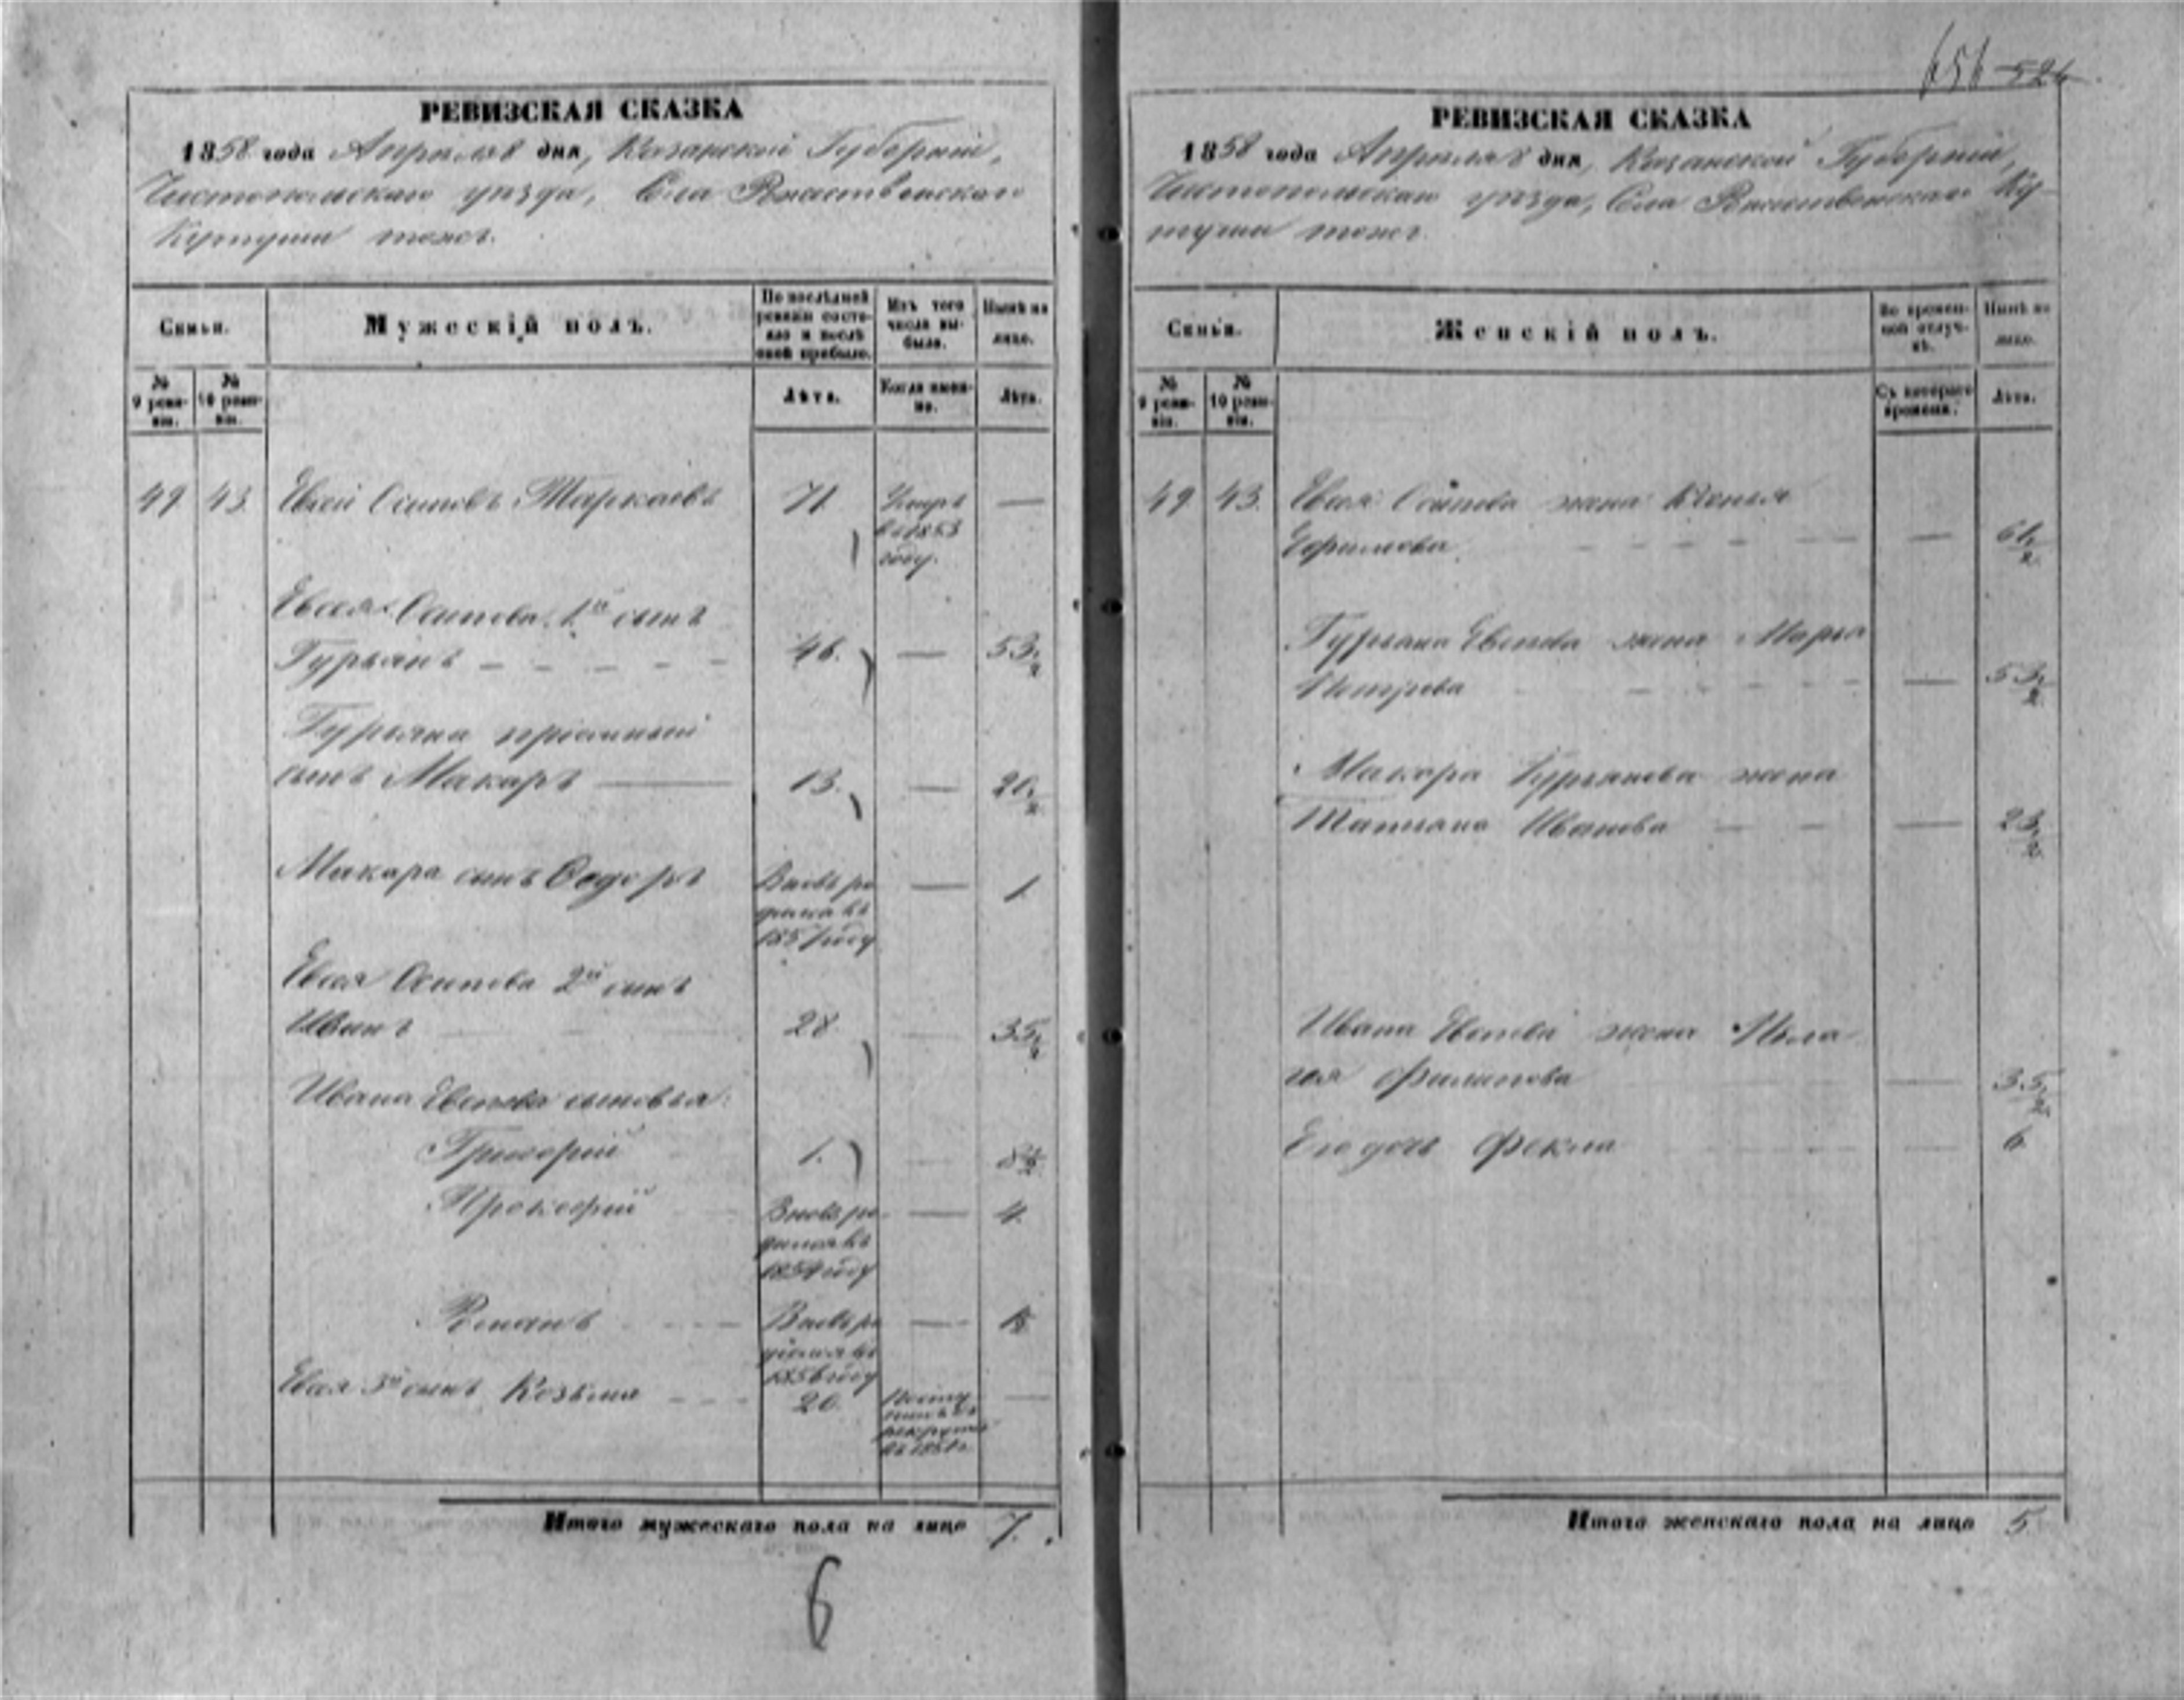 656 524
РЕВИЗСКАЯ СКАЗКА
1858 года Апреля 8 дня, Казанской Губерніи,
Чистопольскаго уезда, Села Рождественскаго
тожъ.
Семьи.
Мужескій полъ.
По послѣдней ревизіи состояло и послѣ оной прибыло.
Изъ того числа выбыло.
Нынѣ на лицо.
№ 9 ревизіи.
№ 10 ревизіи.
Лѣта.
Когда именно.
Лѣта.
49 43 Евсей Осиповъ 71 Умеръ —
въ 1853
году.
Евсея Осипова 1й сынъ
Гурьянъ 46. — 53½
Гурьяна пріемный
сынъ Макаръ 13. — 20½
Макара сынъ Ѳедоръ Вновь ро — 1
дился въ
1857 году
Евсея Осипова 2й сынъ
Иванъ 28 35½
Ивана Евсеева сыновья:
Григорій 1. 8½
Прокофій Вновь ро — 4.
дился въ
1854 году
Романъ Вновь ро — 1½
дился въ
1856 году
Евсея 3й сынъ Козьма 20. Посту —
пилъ въ
рекруты
Итого мужескаго пола на лицо 7.
6
РЕВИЗСКАЯ СКАЗКА
1858 года Апреля 8 дня, Казанской Губерніи,
Чистопольскаго уезда, Села Рождественскаго
тожъ.
Семьи.
Женскій полъ.
Во временной отлучкѣ.
Нынѣ на лицо.
№ 9 ревизіи.
№ 10 ревизіи.
Съ котораго времени.
Лѣта.
49 43. Евсея Осипова жена
Ефимова — 61½
Гурьяна Евсеева жена Марья
Петрова — 53½
Макара Гурьянова жена
Татіана Иванова — 23½
Ивана Евсеева жена Пела
гея Филипова — 35½
Его дочь Фекла 6
Итого женскаго пола на лицо 5